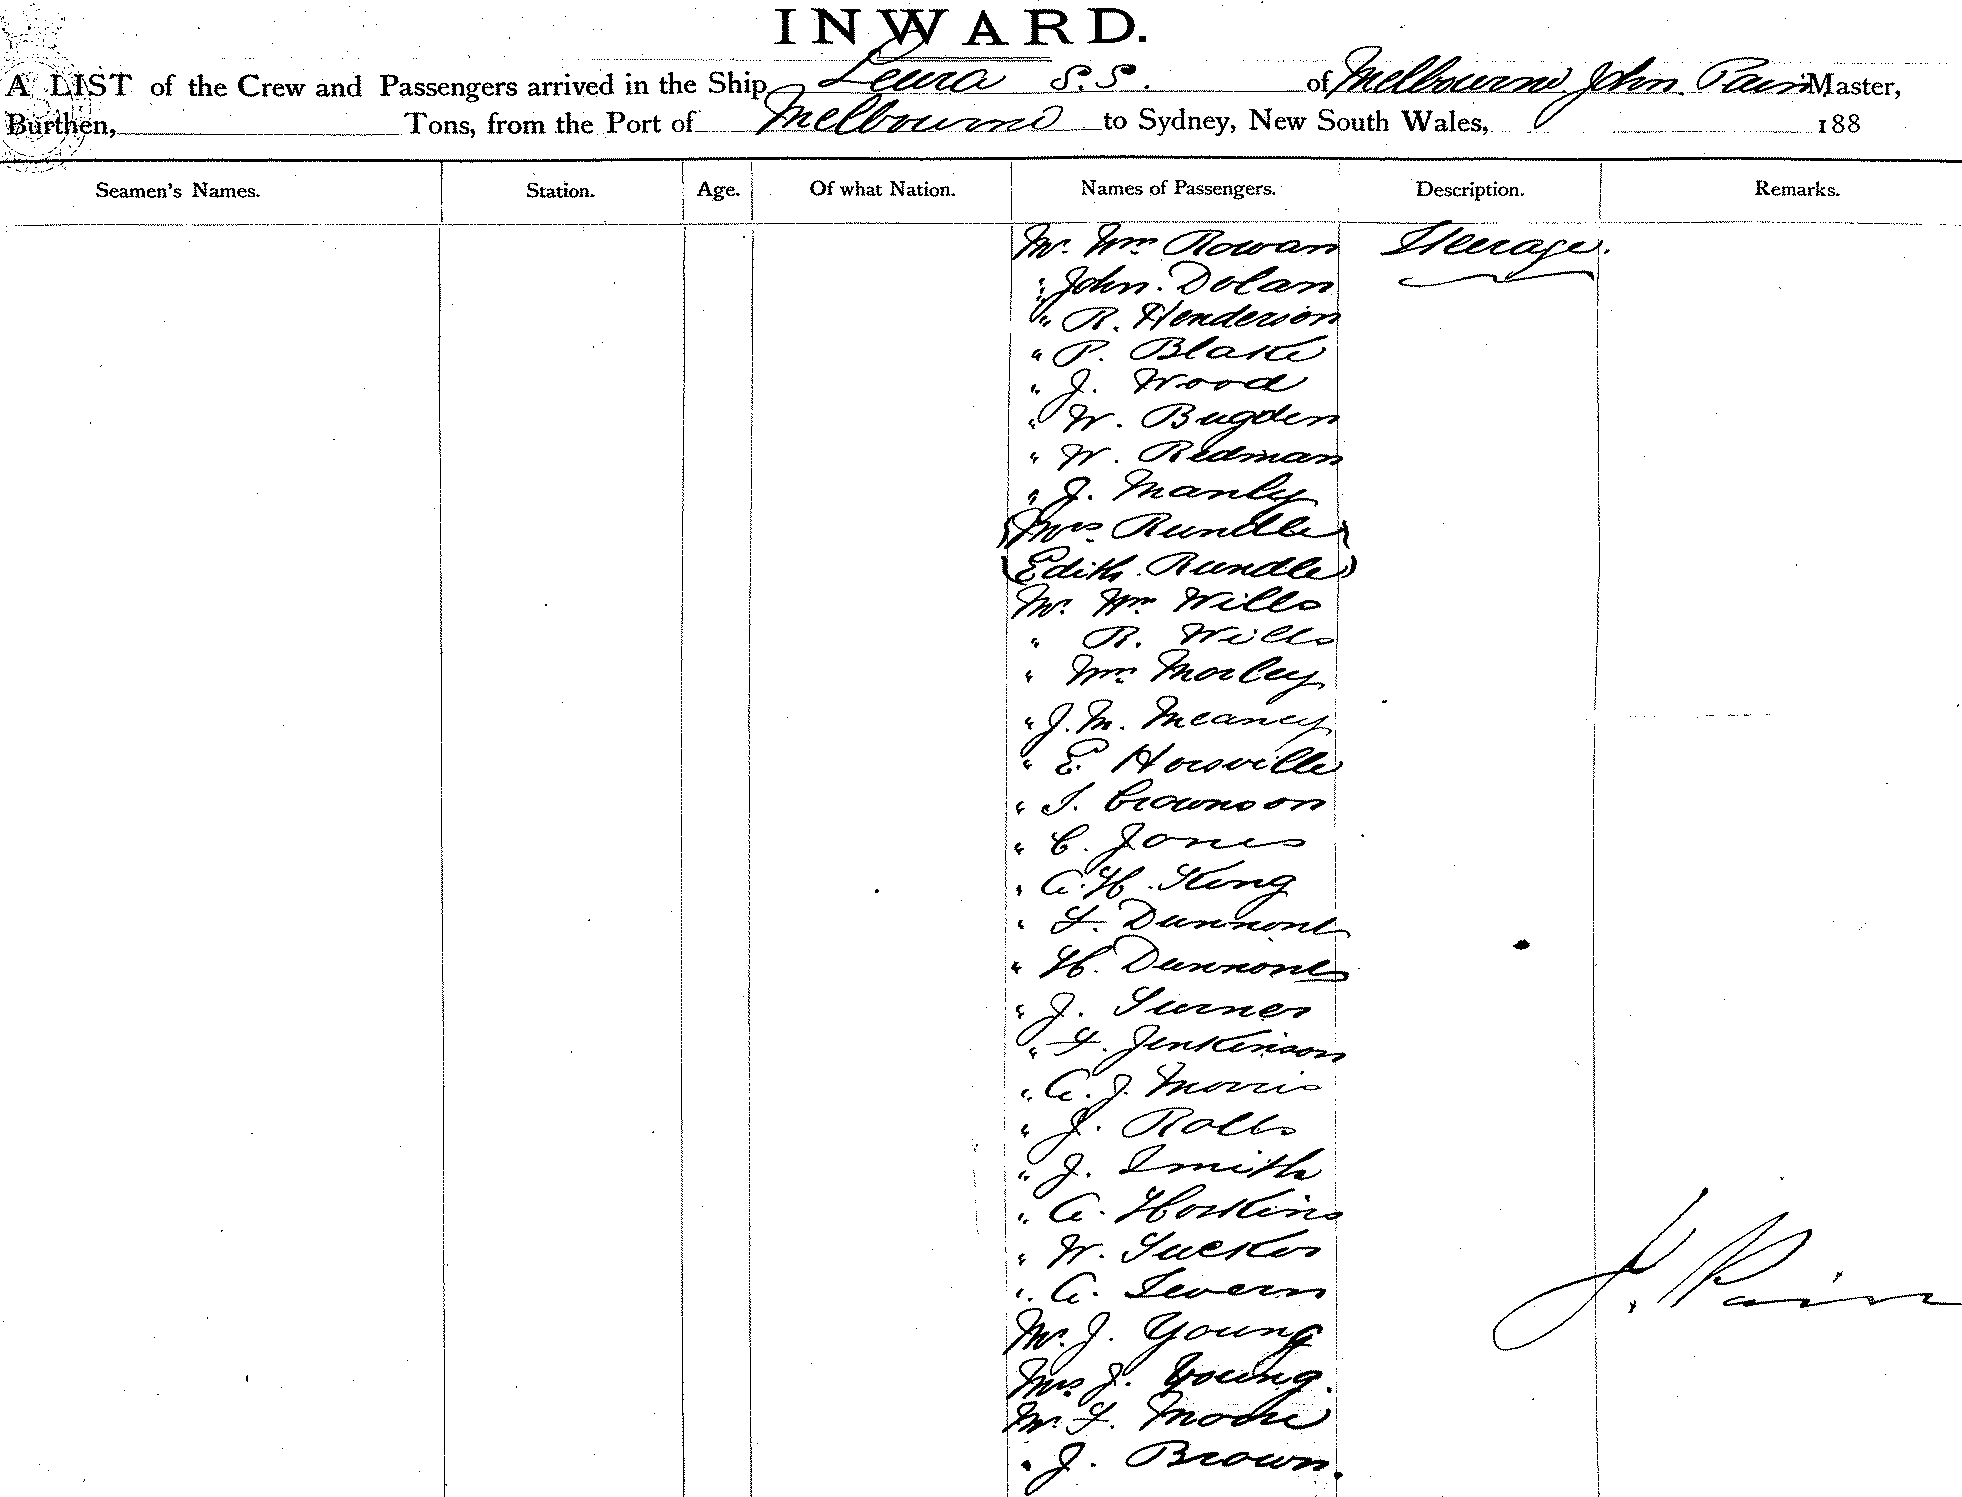 INWARD.
A LIST of the Crew and Passengers arrived in the Ship Leura S.S. of Melbourne John Pain Master,
Burthen, Tons, from the Port of Melbourne to Sydney, New South Wales, 188
Seamen's Names. Station. Age. Of what Nation. Names of Passengers. Description. Remarks.
Mr. Wm Rowan Steerage.
" John Dolan
" R. Henderson
" P. Blake
" J. Wood
" W. Bugden
" W. Redman
" J. Manly
(Mrs Rundle)
(Edith Rundle)
Mr. Wm Wills
" R. Wills
" Wm Morley
" J. M. Meaney
" E Horsville
" S. Crownson
" C. Jones
" A. H. King
" F. Dunmont
" H. Dunmont
" J. Turner
" F. Jenkinson
" A. J. Morris
" J. Rolls
" J. Smith
" A. Hoskins
" W. Tucker
J. Pain
" A. Severn
Mr. J. Young
Mrs J. Young.
Mr. F. Moore
" J. Brown.